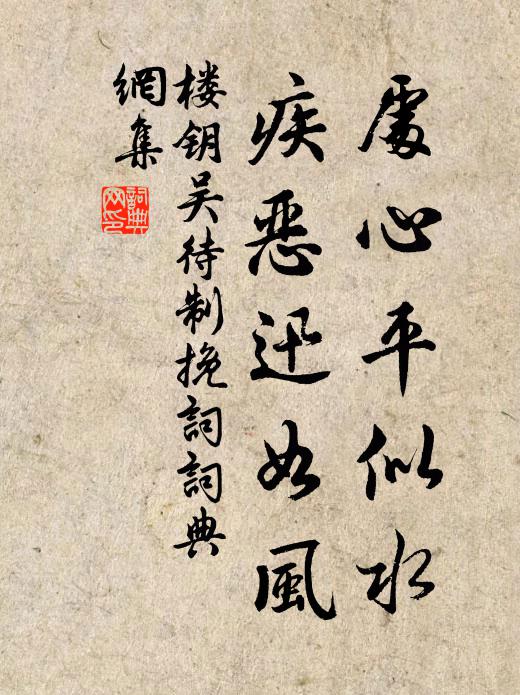 處心平似水
疾恶迅如風
楼钥吴待制挽詞詞典
網集
詞典
网印